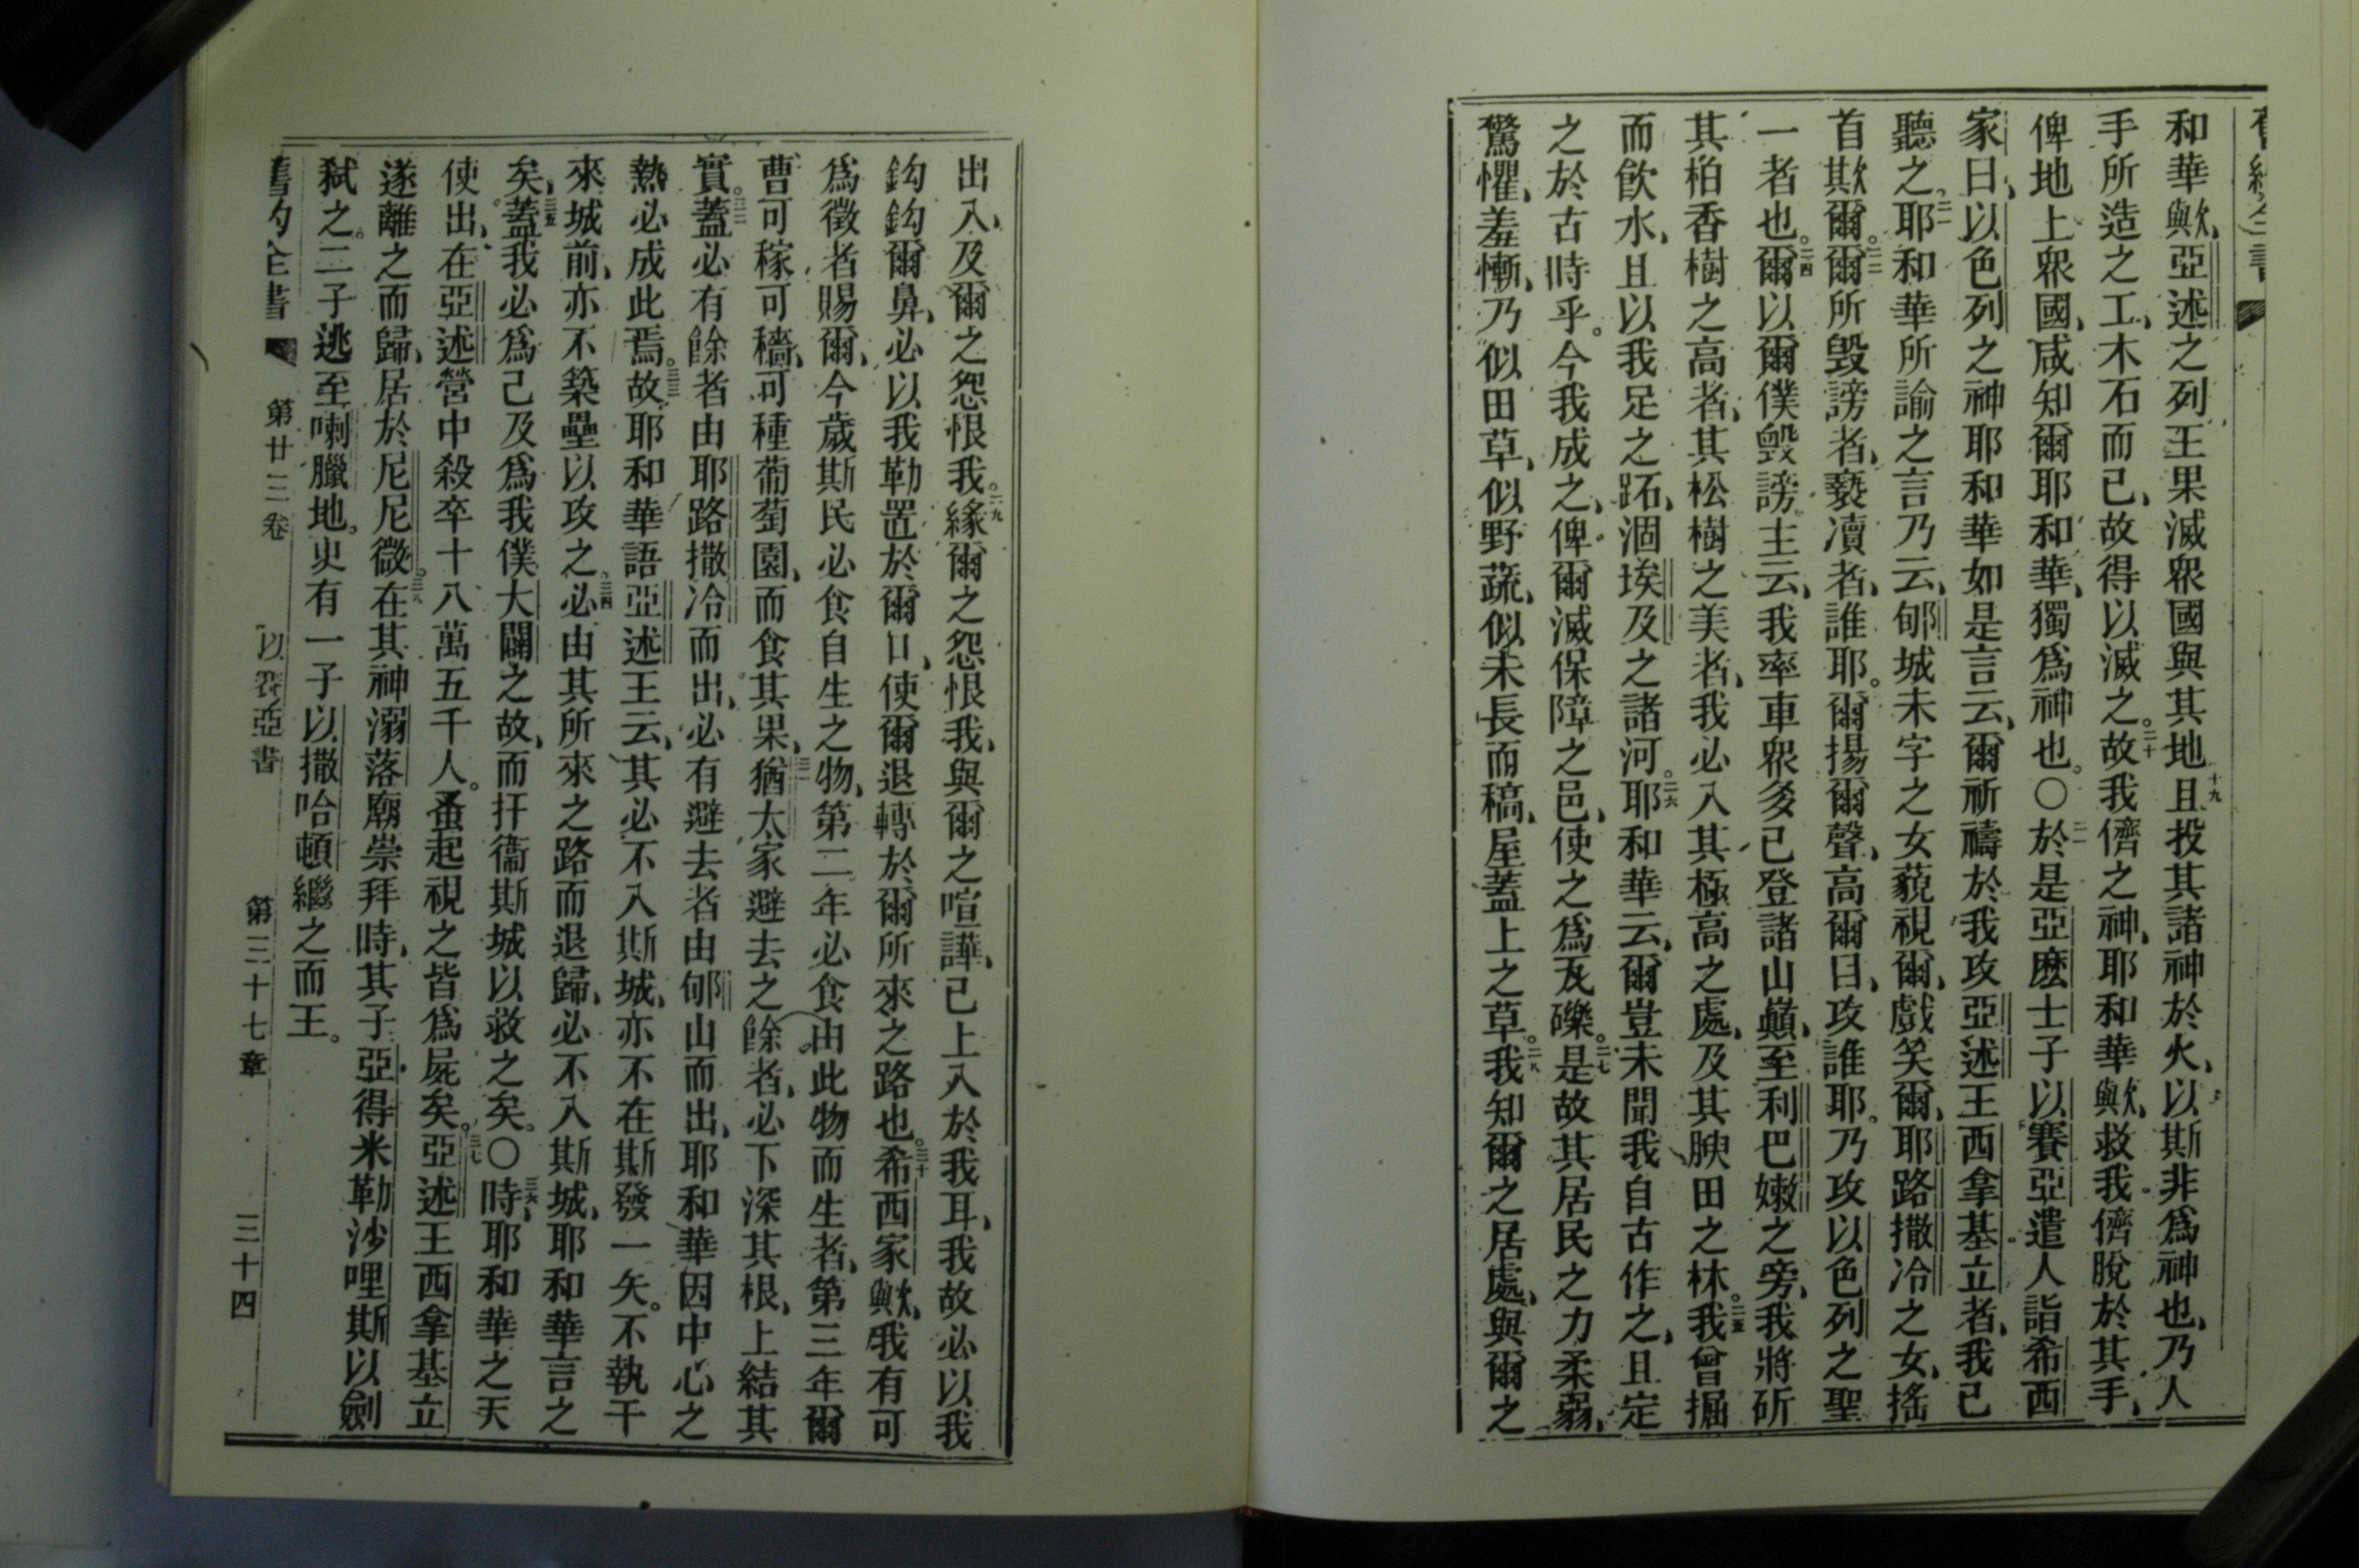 和華歟、亞述之列王果滅眾國與其地、十九且投其諸神於火、以斯非爲神也、乃人
手所造之工、木石而已、故得以滅之。二十故我儕之神、耶和華歟、救我儕脫於其手、
俾地上眾國、咸知爾耶和華、獨爲神也。〇二一於是亞麽士子以賽亞遣人詣希西
家曰、以色列之神耶和華如是言云、爾祈禱於我攻亞述王西拿基立者、我已
聽之。二二耶和華所諭之言乃云、郇城未字之女藐視爾、戲笑爾、耶路撒冷之女、搖
首欺爾。二三爾所毀謗者、褻凟者、誰耶。爾揚爾聲、高爾目、攻誰耶。乃攻以色列之聖
一者也。二四爾以爾僕毀謗主云、我率車眾多已登諸山巔、至利巴嫩之旁、我將斫
其柏香樹之高者、其松樹之美者、我必入其極高之處、及其腴田之林。二五我曾掘
而飲水、且以我足之跖、涸埃及之諸河。二六耶和華云、爾豈未聞我自古作之、且定
之於古時乎。今我成之、俾爾滅保障之邑、使之爲瓦礫。二七是故其居民之力柔弱、
驚懼、羞慚、乃似田草、似野蔬、似未長而稿、屋蓋上之草。二八我知爾之居處、與爾之
出入、及爾之怨恨我。二九緣爾之怨恨我、與爾之喧譁、已上入於我耳、我故必以我
鈎鈎爾鼻、必以我勒置於爾口、使爾退轉於爾所來之路也。三十希西家歟、我有可
爲徵者賜爾、今歲斯民必食自生之物、第二年必食由此物而生者、第三年爾
曹可稼可穡、可種葡萄園、而食其果、三一猶太家避去之餘者、必下深其根、上結其
實。三二蓋必有餘者由耶路撒冷而出、必有避去者由郇山而出、耶和華因中心之
熱必成此焉。三三故耶和華語亞述王云、其必不入斯城、亦不在斯發一矢。不執干
來城前、亦不築壘以攻之。三四必由其所來之路而退歸、必不入斯城、耶和華言之
矣、三五蓋我必爲己及爲我僕大闢之故、而扞衞斯城以救之矣。〇三六時、耶和華之天
使出、在亞述營中殺卒十八萬五千人。蚤起視之皆爲屍矣。三七亞述王西拿基立
遂離之而歸、居於尼尼微。三八在其神溺落廟崇拜時、其子亞得米勒沙哩斯以劍
弒之。二子逃至喇臘地。史有一子以撒哈頓繼之而王。
舊約全書 第廿三卷 以賽亞書 第三十七章 三十四